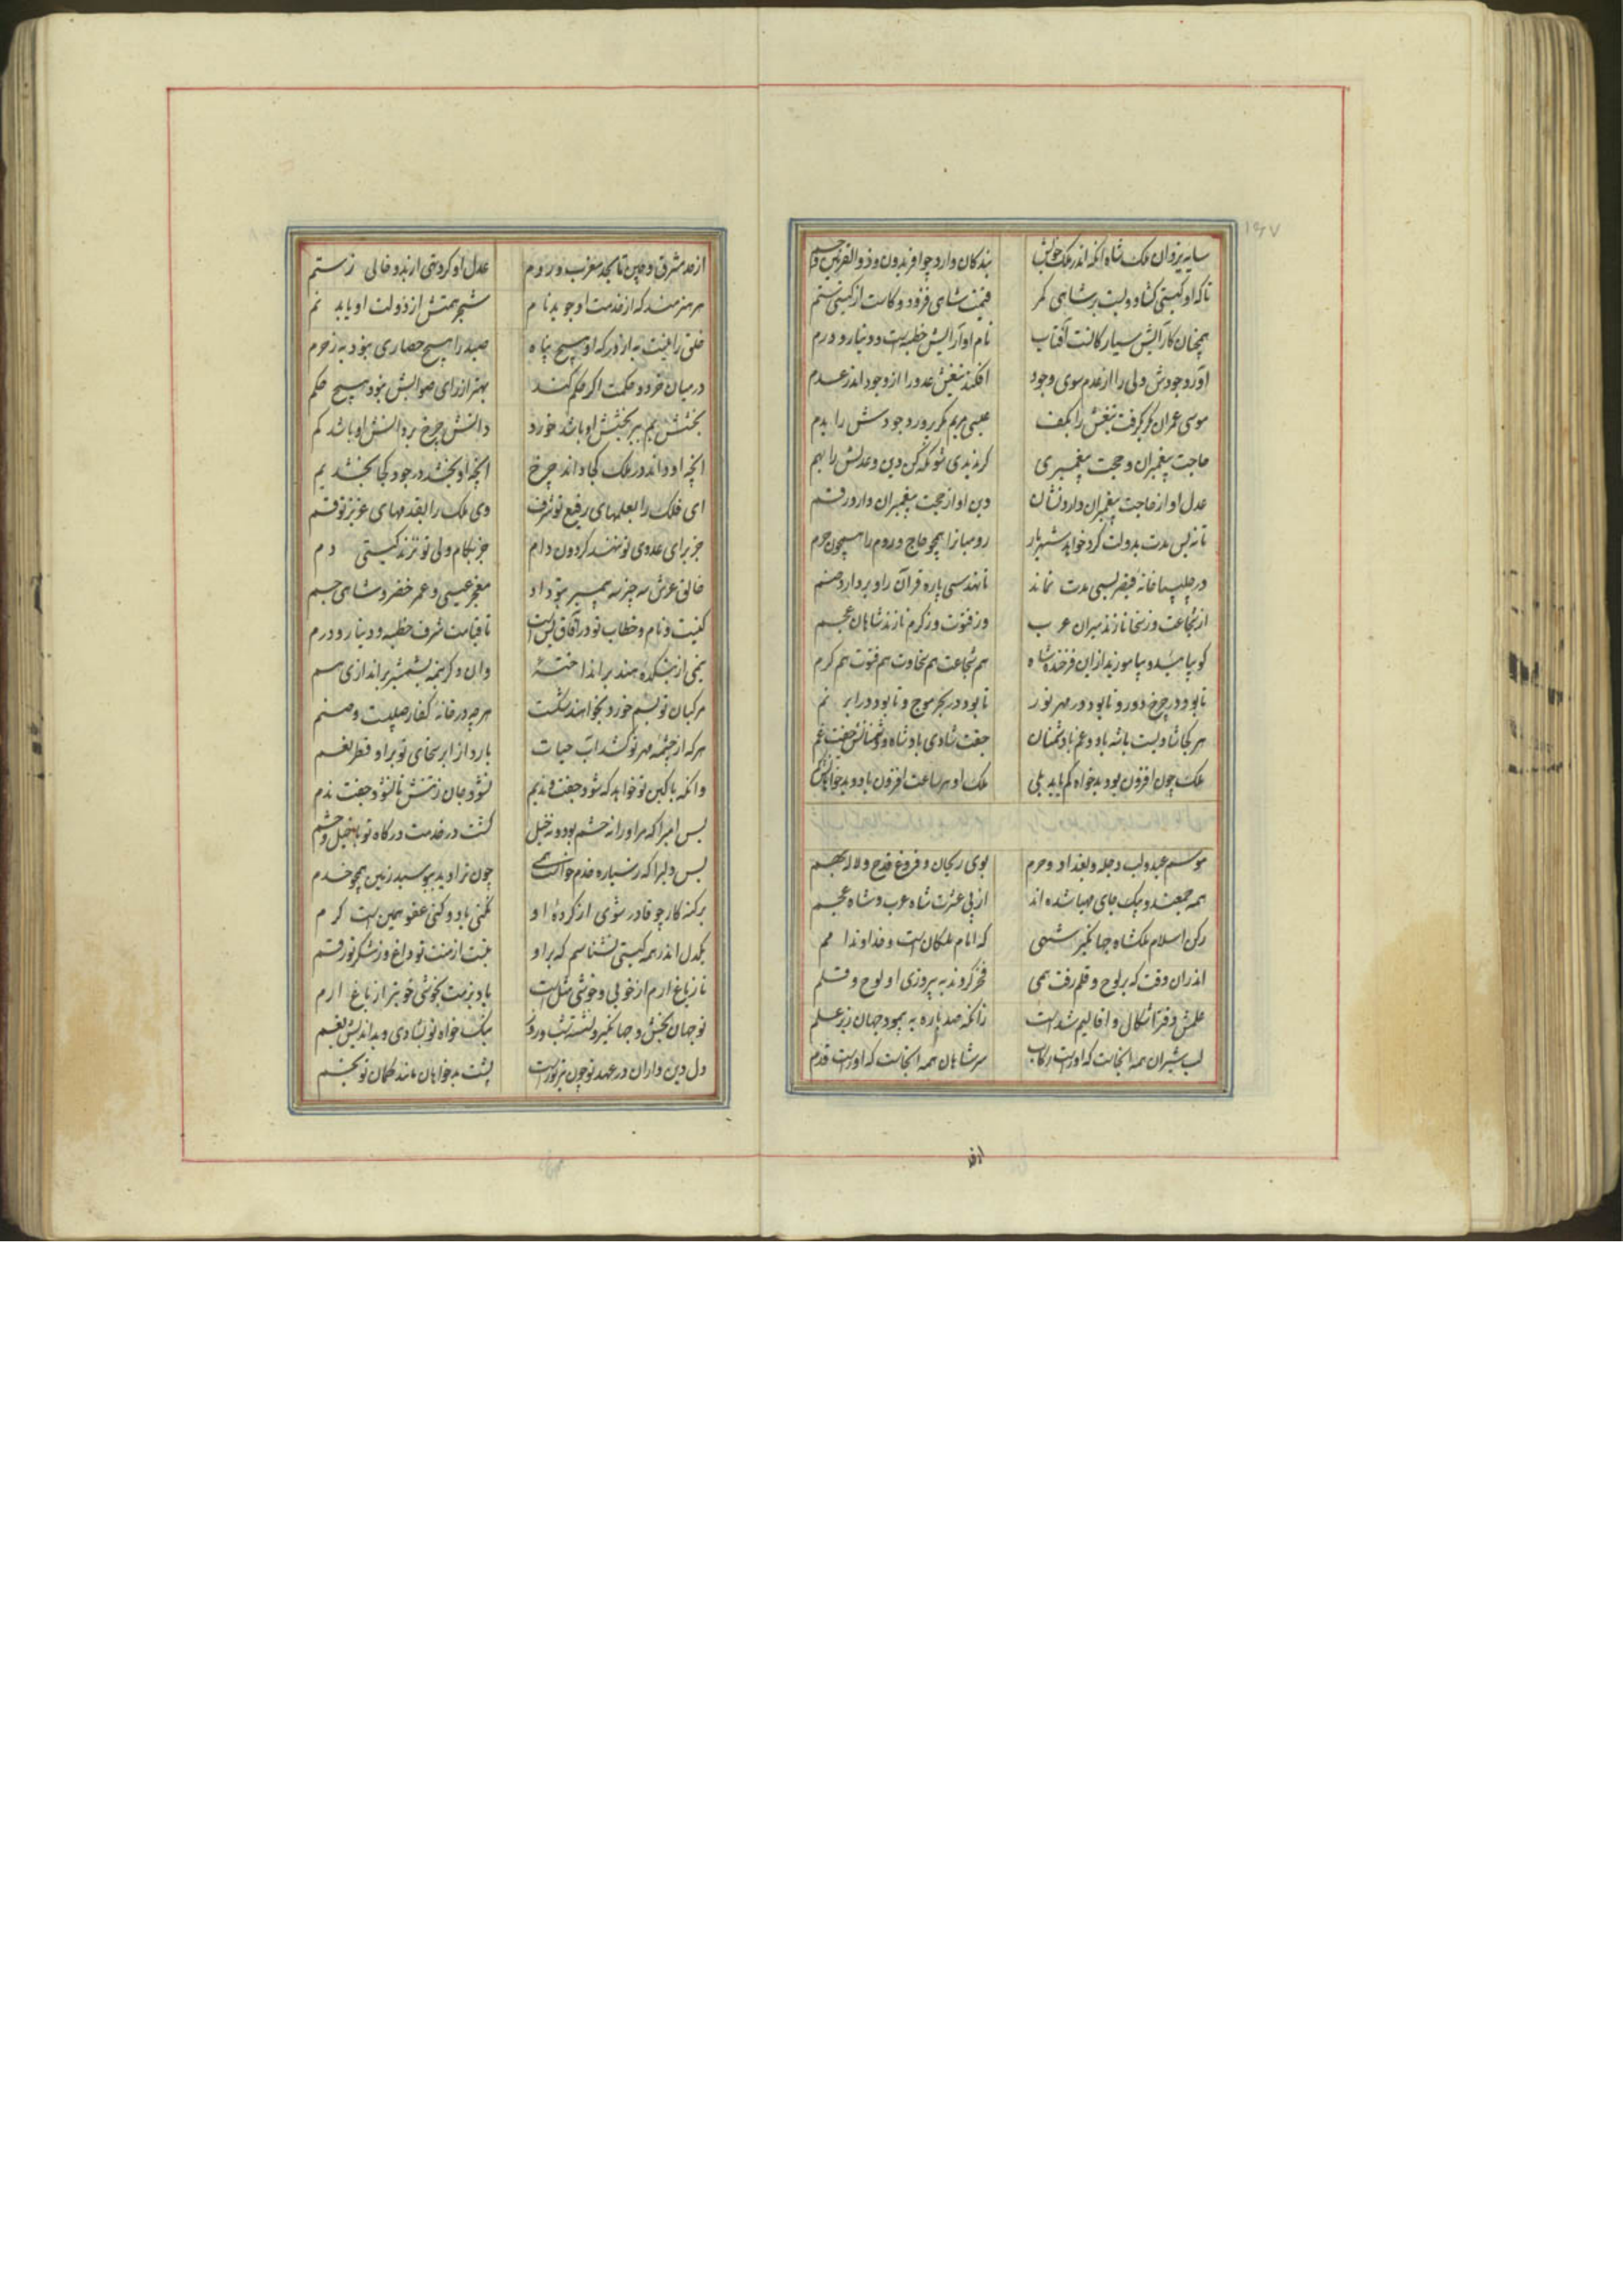 ۱۶۷
سایه یزدان ملک شاه آنکه اندر ملک خویش بندکان دارد چو افریدون و ذو القرنین و جم
تا که او کیتی کشاد و بست بر شاهی کمر قیمت شاهی فزود و کاست از کیتی ستم
همچنان کارایش سیارکانست آفتاب نام او آرایش خطبه است و دینار و درم
آورد جودش ولی را از عدم سوی وجود افکند تیغش عدو را از وجود اندر عدم
موسی عمران مکر کرفت تیغش را بکف عیسی مریم مکر پرورد جودش را بدم
حاجت پیغمبران و حجت پیغمبری کر ندیدی شو نکه کن دین و عدلش را بهم
عدل او از حاجت پیغمبران دارد نشان دین او از حجت پیغمبران دارد رقم
تا نه بس مدت بدولت کرد خواهد شهریار رومیانرا همچو حاج و روم را همچون حرم
در چلیپا خانه قیصر بسی مدت نماند تا نهد سی پاره قرآن را و بردارد صنم
از شجاعت وز سخا نازند میران عرب وز فتوت وز کرم نازند شاهان عجم
کو بیائید و بیاموزید ازین فرخنده شاه هم شجاعت هم سخاوت هم فتوت هم کرم
تا بود در چرخ دور و تا بود در مهر نور تا بود در بحر موج و تا بود در ابر نم
هر کجا شادیست باشه باد و غم با دشمنان جفت شادی باد شاه و دشمنانش جفت غم
ملک چون افزون بود بدخواه کم باید بلی ملک او هر ساعت افزون باد و بدخواهانش کم
موسم عید و لب دجله و بغداد و حرم بوی ریحان و فروغ قدح و لاله بهم
همه جمعند و بیک جای مهیا شده اند از پی عشرت شاه عرب و شاه عجم
رکن اسلام ملکشاه جهانکیر شهی که امام ملکان است و خداوند امم
اندران وقت که بر لوح و قلم رفت همی فخر کردند به پیروزی او لوح و قلم
علمش دفتر اشکال و اقالیم شد است زانکه صد باره به پیمود جهان زیر علم
لب شیران همه انجاست که اوراست رکاب سر شاهان همه انجاست که اوراست قدم
از حد مشرق و چین تا بحد مغرب و روم عدل او کرد تهی از بد و خالی ز ستم
هر هنرمند که از خدمت او جوید نام شجر همتش از دولت او یابد نم
خلق را نیست به از درکه او هیچ پناه صید را هیچ حصاری نبود به ز حرم
در میان خرد و حکمت اکر حکم کنند بهتر از رای صوابش نبود هیچ حکم
بخشش یم بر بخشش او باشد خورد دانش چرخ بر دانش او باشد کم
انچه او داند در ملک کجا داند چرخ انچه او بخشد در جود کجا بخشد یم
ای فلک را بعلمهای رفیع تو شرف وی ملک را بقدمهای عزیز تو قسم
جز برای عدوی تو ننهد کردون دام جز بکام ولی تو نزند کیتی دم
خالق عرش سه چیز سه پیمبر بتو داد معجز عیسی و عمر خضر و شاهی جم
کنیت و نام و خطاب تو در آفاق بس است تا قیامت شرف خطبه و دینار و درم
نیمی از بتکده هند بر انداخته وان دکر نیمه بشمشیر براندازی هم
مرکبان تو بسم خورد بخواهند شکست هر چه در خانه کفار صلیبست و صنم
هر که از چشمه مهر تو کشد آب حیات بارد از ابر سخای تو بر او قطر نعم
وانکه با کین تو خواهد که شود جفت و ندیم نشود جان ز تنش تا نشود جفت ندم
بس امیرا که مر او را نه حشم بود و نه خیل کشت در خدمت درکاه تو با خیل و حشم
بس دلیرا که ز سیاره خدم خواست همی چون ترا دید ببوسید زمین همچو خدم
بر کنه کار چو قادر شوی از کرده او نکنی یاد و کنی عفو همین است کرم
یکدل اندر همه کیتی نشناسم که بر او نیست از منت تو داغ و ز شکر تو رقم
تا ز باغ ارم از خوبی و خوشی مثل است باد بزمت بخوشی خوبتر از باغ ارم
تو جهان بخش و جهانکیر و نشسته شب و روز نیک خواه تو بشادی و بداندیش بغم
دل دین داران در عهد تو چون تیر تو راست پشت بدخواهان مانند کمان تو بخم